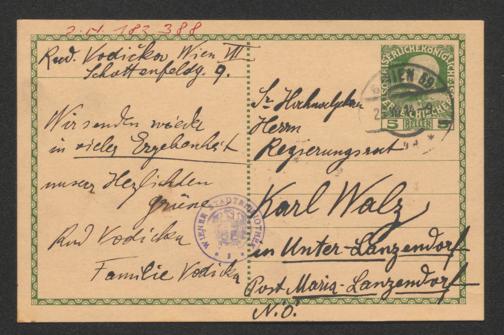 J.N. 183.388
Rud. Vodička Wien VII
Schottenfeldg. 9.
Wir senden wieder
in vieler Ergebenheit
unsere Herzlichsten
Grüsse
Rud Vodicka
Familie Vodicka
WIENER STADTBIBLIOTHEK
KAISERLICHEKÖNIGLICHE
WIEN
5 HELLER 5
Sr Hochwolgeboren
Herrn
Regierungsrat
Karl Walz
in Unter-Lanzendorf
Post Maria-Lanzendorf
N.Ö.